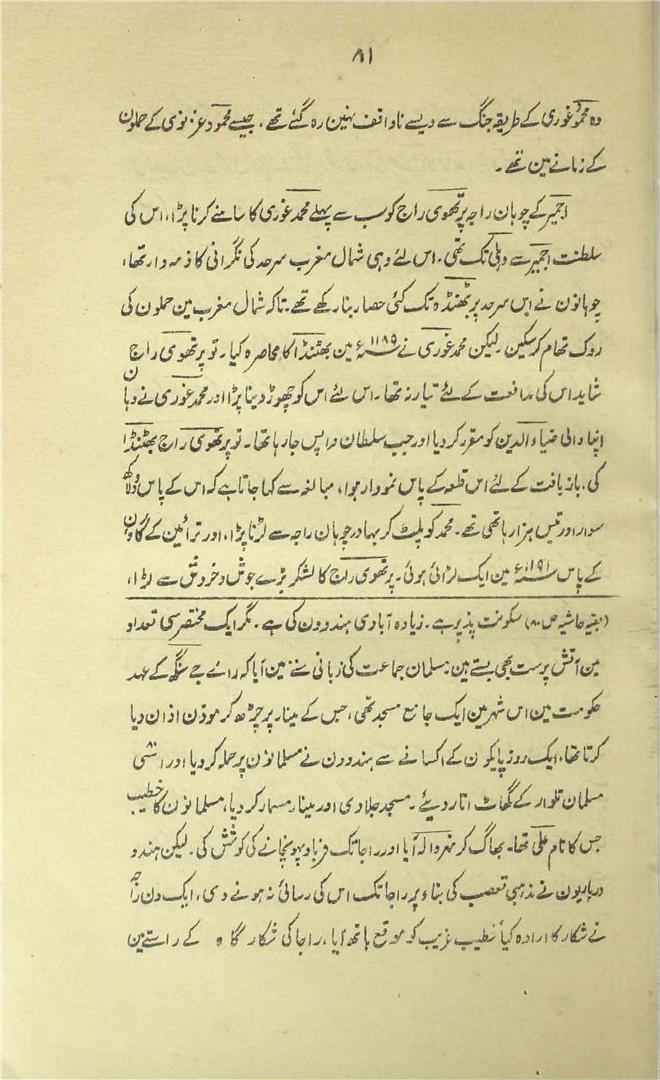 ۸۱
وہ محمد غوری کے طریقہ جنگ سے ویسے ناواقف نہین رہ گئے تھے، جیسے محمود غزنوی کے حملون
کے زمانے مین تھے۔
اجمیر کے چوہان راجہ پرتھوی راج کو سب سے پہلے محمد غوری کا سامنے کرنا پڑا، اس کی
سلطنت اجمیر سے دہلی تک تھی، اس لئے وہی شمال مغرب سرحد کی نگرانی کا ذمہ دار تھا،
چوہانون نے اس سرحد پر بھٹنڈہ تک کئی حصار بنا رکھے تھے۔ تاکہ شمال مغرب مین حملون کی
روک تھام کر سکین لیکن محمد غوری نے ۱۱۸۹ء مین بھٹنڈا کا محاصرہ کیا، تو پرتھوی راج
شاید اس کی مدافعت کے لئے تیار نہ تھا۔ اس لئے اس کو چھوڑ دینا پڑا اور محمد غوری نے وہان
اپنا والی ضیاء الدین کو مقرر کر دیا اور جب سلطان واپس جا رہا تھا۔ تو پرتھوی راج بھٹنڈا
کی بازیافت کے لئے اس قلعہ کے پاس نمودار ہوا، مبالغہ سے کہا جاتا ہے کہ اس کے پاس دو لاکھ
سوار اور تیس ہزار ہاتھی تھے۔ محمد کو پلٹ کر بہادر چوہان راجہ سے لڑنا پڑا، اور ترائین کے گاؤن
کے پاس ۱۱۹۱ء مین ایک لڑائی ہوئی۔ پرتھوی راج کا لشکر بڑے جوش و خروش سے لڑا،
(بقیہ حاشیہ ص ۸۰) سکونت پذیر ہے۔ زیادہ آبادی ہندوون کی ہے۔ مگر ایک مختصر سی تعداد
مین آتش پرست بھی بستے ہین، مسلمان جماعت کی زبانی سننے مین آیا کہ راے جے سنگھ کے عہد
حکومت مین اس شہر مین ایک جامع مسجد تھی، جس کے مینار پر چڑھ کر موذن اذان دیا
کرتا تھا، ایک روز پایکون کے اکسانے سے ہندوون نے مسلمانون پر حملہ کر دیا اور اسّی
مسلمان تلوار کے گھاٹ اتار دیئے۔ مسجد جلا دی اور مینار مسمار کر دیا، مسلمانون کا خطیب
جس کا نام علی تھا۔ بھاگ کر نہروالہ آیا اور راجا تک فریاد پہونچانے کی کوشش کی۔ لیکن ہندو
درباریون نے مذہبی تعصب کی بناء پر راجا تک اس کی رسائی نہ ہونے دی، ایک دن راجہ
نے شکار کا ارادہ کیا خطیب غریب کو موقع ہاتھ آیا، راجا کی شکار گاہ کے راستے مین